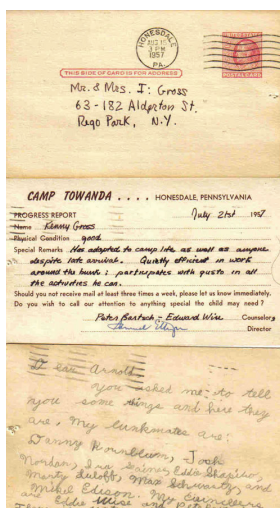 HONESDALE
AUG 15
3 PM
1957
PA.
UNITED STATES
POSTAL CARD
THIS SIDE OF CARD IS FOR ADDRESS
Mr. & Mrs. I. Gross
63-182 Alderton St.
Rego Park, N.Y.
CAMP TOWANDA .... HONESDALE, PENNSYLVANIA
PROGRESS REPORT July 21st 1957
Name Kenny Gross
Physical Condition good
Special Remarks Has adapted to camp life as well as anyone
despite late arrival. Quietly efficient in work
around the bunk; participates with gusto in all
the activities he can.
Should you not receive mail at least three times a week, please let us know immediately.
Do you wish to call our attention to anything special the child may need?
Peter Bartsch - Edward Wise Counselors
Director
Dear Arnold
You asked me to tell
you some things and here they
are. My bunkmates are:
Danny Kornblum, Josh
Nordon, Ira Eddie Shapiro,
Marty Max Schwartz, and
Mickel Edison. My
are Eddie Wise and